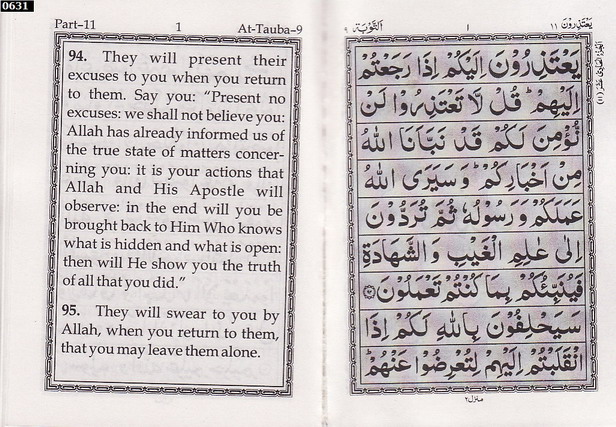 0631
Part–11 1 At-Tauba–9
94. They will present their
excuses to you when you return
to them. Say you: “Present no
excuses: we shall not believe you:
Allah has already informed us of
the true state of matters concer-
ning you: it is your actions that
Allah and His Apostle will
observe: in the end will you be
brought back to Him Who knows
what is hidden and what is open:
then will He show you the truth
of all that you did.”
95. They will swear to you by
Allah, when you return to them,
that you may leave them alone.
يَعْتَذِرُوْنَ ١١ ١ اَلتَّوْبَة ٩
يَعْتَذِرُوْنَ اِلَيْكُمْ اِذَا رَجَعْتُمْ
اِلَيْهِمْ ؕ قُلْ لَّا تَعْتَذِرُوْا لَنْ
نُّؤْمِنَ لَكُمْ قَدْ نَبَّاَنَا اللّٰهُ
مِنْ اَخْبَارِكُمْ ؕ وَسَيَرَى اللّٰهُ
عَمَلَكُمْ وَرَسُوْلُهٗ ثُمَّ تُرَدُّوْنَ
اِلٰى عٰلِمِ الْغَيْبِ وَالشَّهَادَةِ
فَيُنَبِّئُكُمْ بِمَا كُنْتُمْ تَعْمَلُوْنَ ۝٩٤
سَيَحْلِفُوْنَ بِاللّٰهِ لَكُمْ اِذَا
انْقَلَبْتُمْ اِلَيْهِمْ لِتُعْرِضُوْا عَنْهُمْ ؕ
منزل ٢